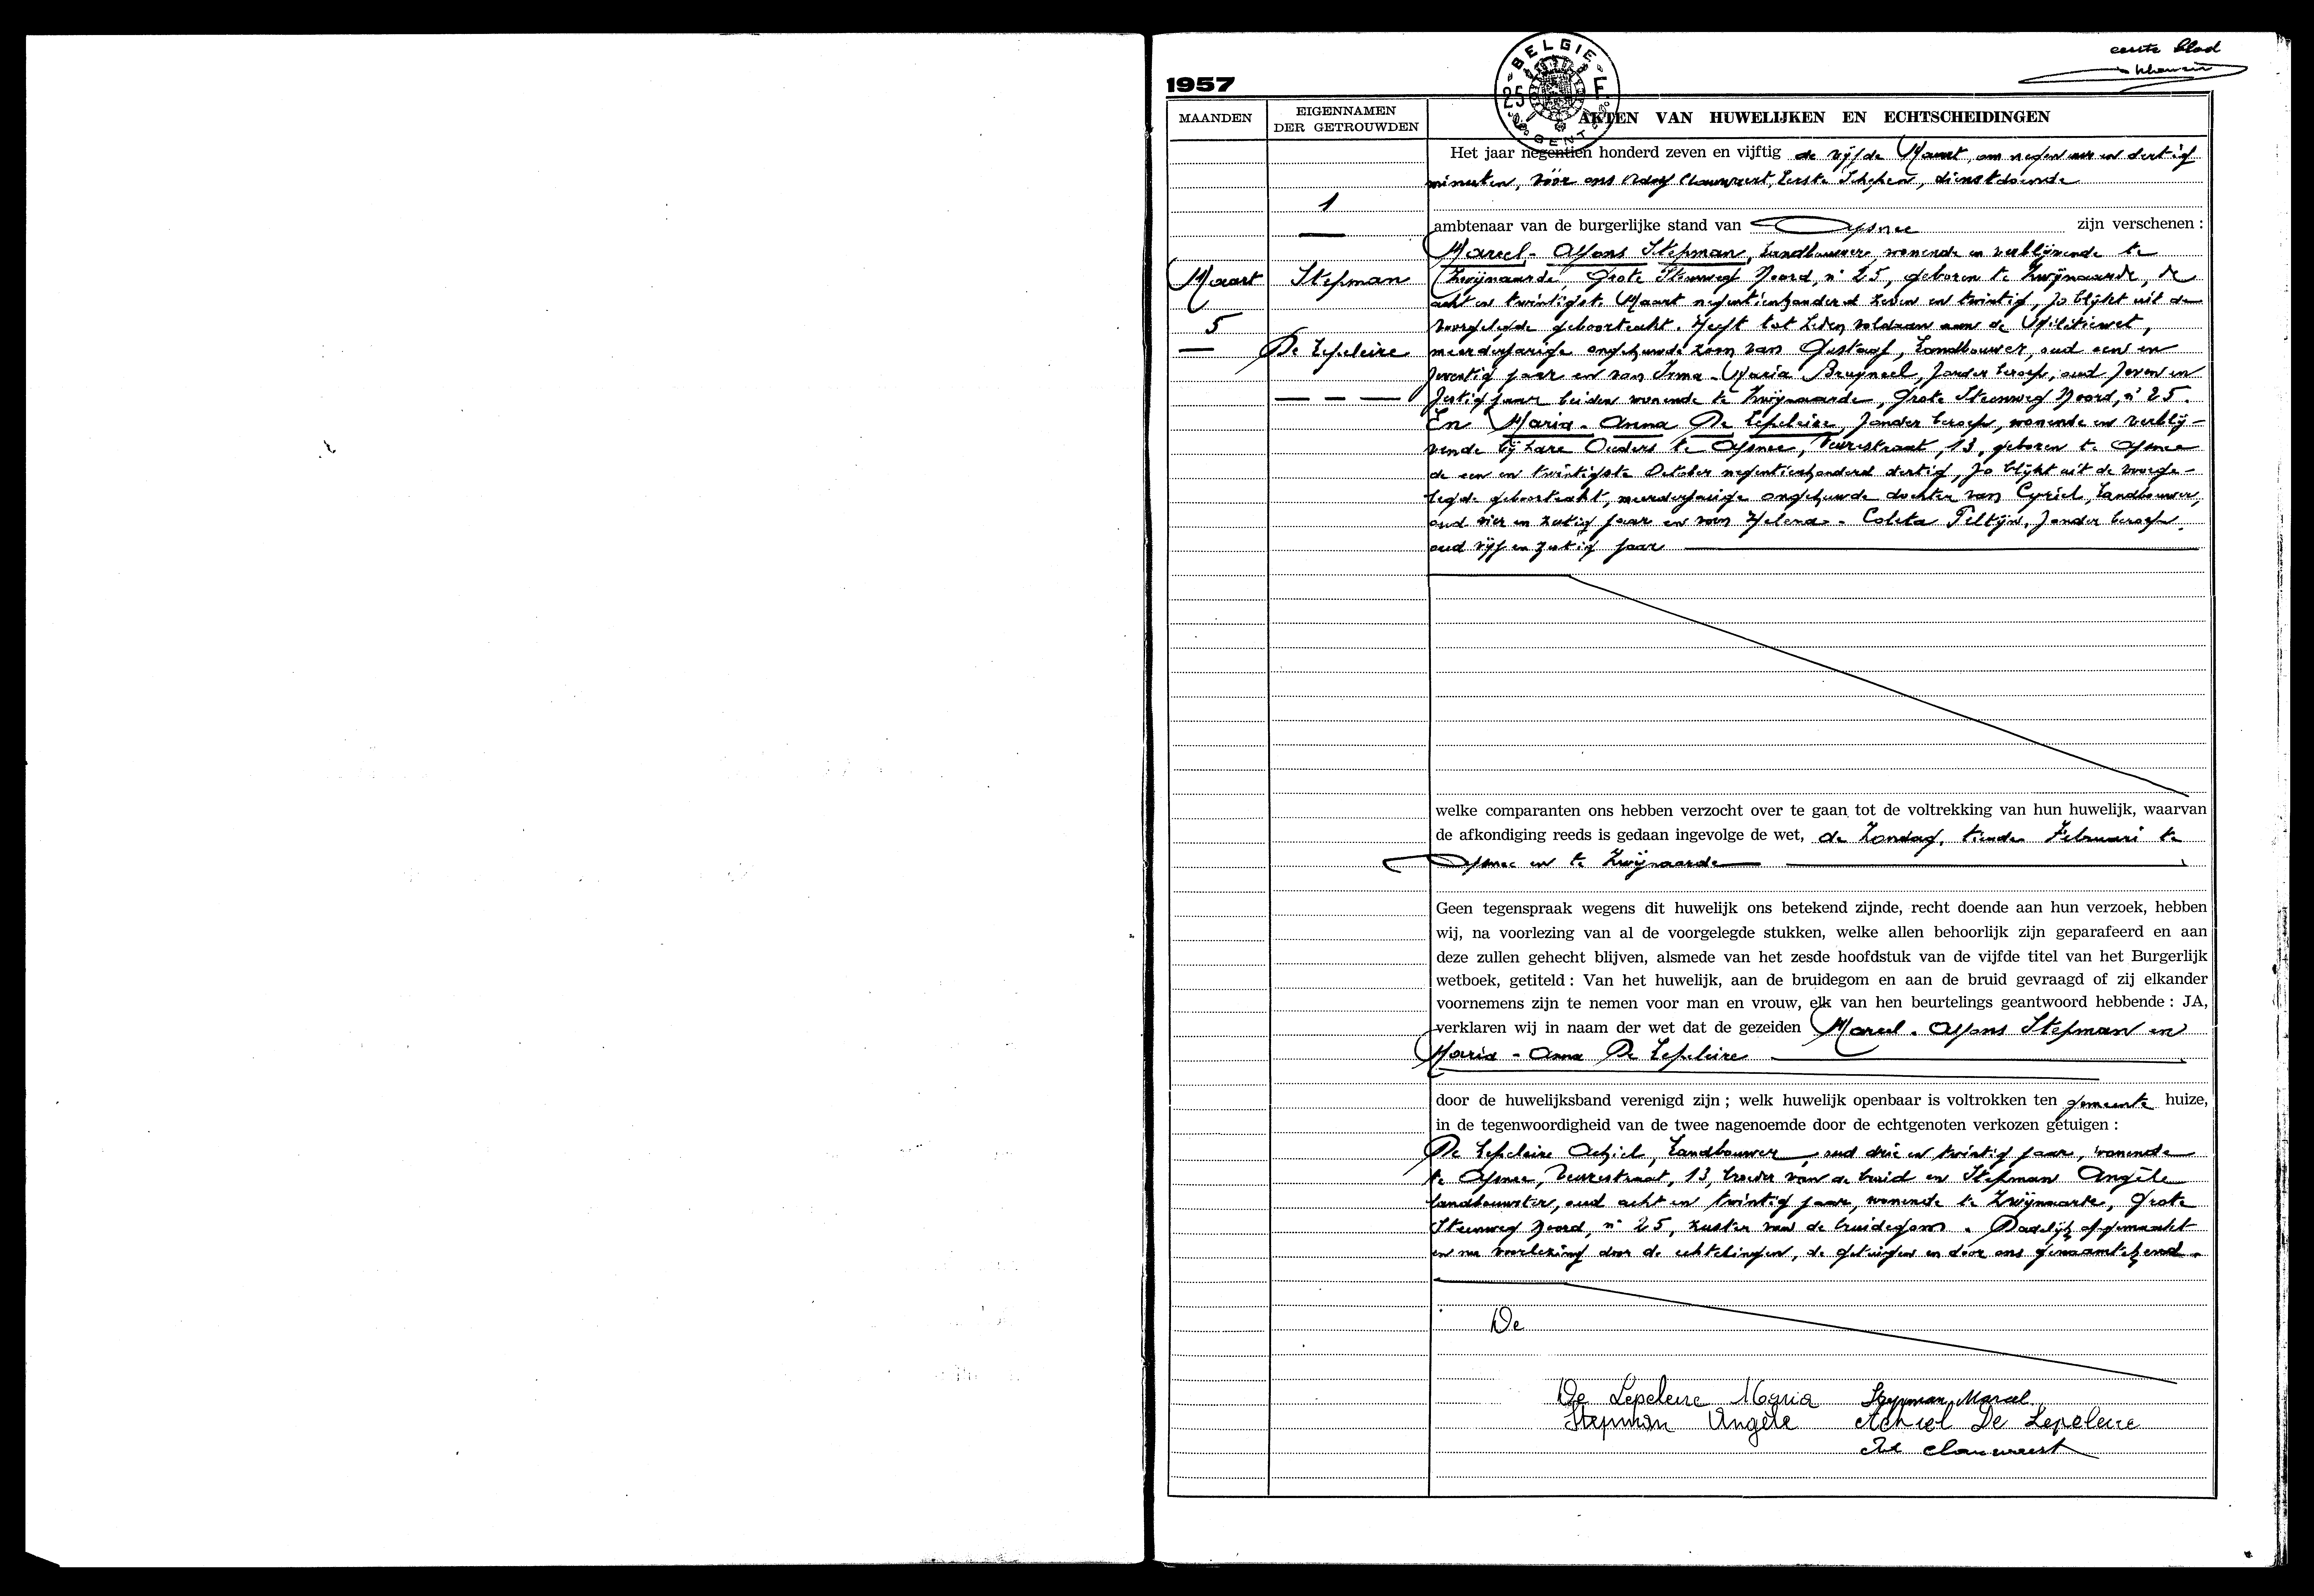 eerste blad
1957
BELGIE
25 F
GENT
MAANDEN
EIGENNAMEN
DER GETROUWDEN
AKTEN VAN HUWELIJKEN EN ECHTSCHEIDINGEN
Het jaar negentien honderd zeven en vijftig de vijfde Maart, om negen uur en dertig
minuten, vóór ons Adolf Clauwaert, Eerste Schepen, dienstdoende
1
ambtenaar van de burgerlijke stand van Afsnee zijn verschenen :
Marcel - Alfons Stepman, landbouwer, wonende en verblijvende te
Maart
Stepman
Zwijnaarde, Grote Steenweg Noord, n° 25, geboren te Zwijnaarde, de
acht en twintigste Maart negentienhonderd zeven en twintig, zo blijkt uit de
5
voorgelegde geboorteakt. Heeft tot heden voldaan aan de Militiewet,
De Lepeleire
meerderjarige ongehuwde zoon van Gustaaf, Landbouwer, oud een en
zeventig jaar en van Irma - Maria Bruyneel, zonder beroep, oud zeven en
zestig jaar beiden wonende te Zwijnaarde, Grote Steenweg Noord, n° 25.
En Maria - Anna De Lepeleire, zonder beroep, wonende en verblij-
vende bij hare Ouders te Afsnee, Veurestraat, 13, geboren te Afsnee
de een en twintigste October negentienhonderd dertig, zo blijkt uit de voorge-
legde geboorteakt, meerderjarige ongehuwde dochter van Cyriel, Landbouwer,
oud vier en zestig jaar en van Helena - Coleta Teltijn, zonder beroep,
oud vijf en zestig jaar
welke comparanten ons hebben verzocht over te gaan tot de voltrekking van hun huwelijk, waarvan
de afkondiging reeds is gedaan ingevolge de wet, de Zondag, tiende Februari te
Afsnee en te Zwijnaarde
Geen tegenspraak wegens dit huwelijk ons betekend zijnde, recht doende aan hun verzoek, hebben
wij, na voorlezing van al de voorgelegde stukken, welke allen behoorlijk zijn geparafeerd en aan
deze zullen gehecht blijven, alsmede van het zesde hoofdstuk van de vijfde titel van het Burgerlijk
wetboek, getiteld : Van het huwelijk, aan de bruidegom en aan de bruid gevraagd of zij elkander
voornemens zijn te nemen voor man en vrouw, elk van hen beurtelings geantwoord hebbende : JA,
verklaren wij in naam der wet dat de gezeiden Marcel - Alfons Stepman en
Maria - Anna De Lepeleire
door de huwelijksband verenigd zijn ; welk huwelijk openbaar is voltrokken ten gemeente huize,
in de tegenwoordigheid van de twee nagenoemde door de echtgenoten verkozen getuigen :
De Lepeleire Achiel, Landbouwer, oud drie en twintig jaar, wonende
te Afsnee, Veurestraat, 13, broeder van de bruid en Stepman Angèle
landbouwster, oud acht en twintig jaar, wonende te Zwijnaarde, Grote
Steenweg Noord, n° 25, zuster van de bruidegom. Dadelijk opgemaakt
en na voorlezing door de echtelingen, de getuigen en door ons genaamtekend.
De
De Lepeleire Maria Stepman Marcel
Stepman Angèle Achiel De Lepeleire
Ad Clauwaert